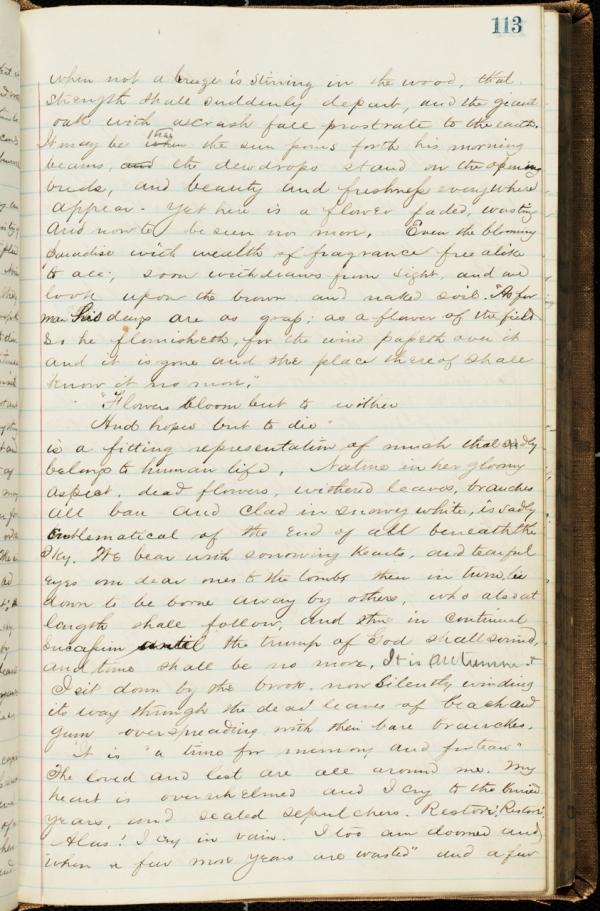 113
when not a breeze is stirring in the wood, that
strength shall suddenly depart, and the giant
oak with a crash fall prostrate to the earth.
It may be when that the sun pours forth his morning
beams, and the dewdrops stand on the opening
buds, and beauty and freshness everywhere
appear. Yet here is a flower faded, wasting
and now to be seen no more. Even the blooming
paradise with wealth of fragrance free alike
to all, soon withdraws from sight, and we
look upon the brown and naked soil. "As for
man his days are as grass; as a flower of the field
so he flourisheth, for the wind passeth over it
and it is gone and the place thereof shall
know it no more."
"Flowers bloom but to wither
And hopes but to die"
is a fitting representation of much that sadly
belongs to human life. Nature in her gloomy
aspect, dead flowers, withered leaves, branches
all bare and clad in snowy white, is sadly
emblematical of the end of all beneath the
sky. We bear with sorrowing hearts, and tearful
eyes our dear ones to the tombs then in turn, lie
down to be borne away by others, who also at
length shall follow, and thus in continual
succession until the trump of God shall sound,
and time shall be no more. It is Autumn &
I sit down by the brook, now silently winding
its way through the dead leaves of beach and
gum overspreading with their bare branches.
"It is "a time for memory and for tears"
The loved and lost are all around me. My
heart is overwhelmed and I cry to the buried
years, and sealed sepulchers. Restore! Restore!
Alas! I cry in vain. I too am doomed and
"when a few more years are wasted" and a few